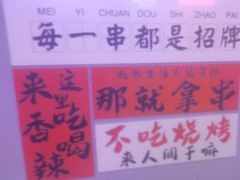 MEI YI CHUAN DOU SHI ZHAO PAI
每一串都是招牌
来这里吃香喝辣
既然生活不能
那就拿串
不吃烧烤
来人间干嘛